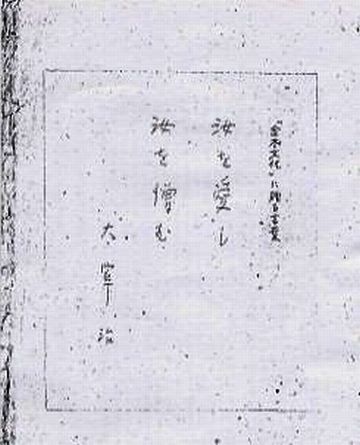 「金木文化」に贈る言葉
汝を愛し
汝を憎む
太宰治